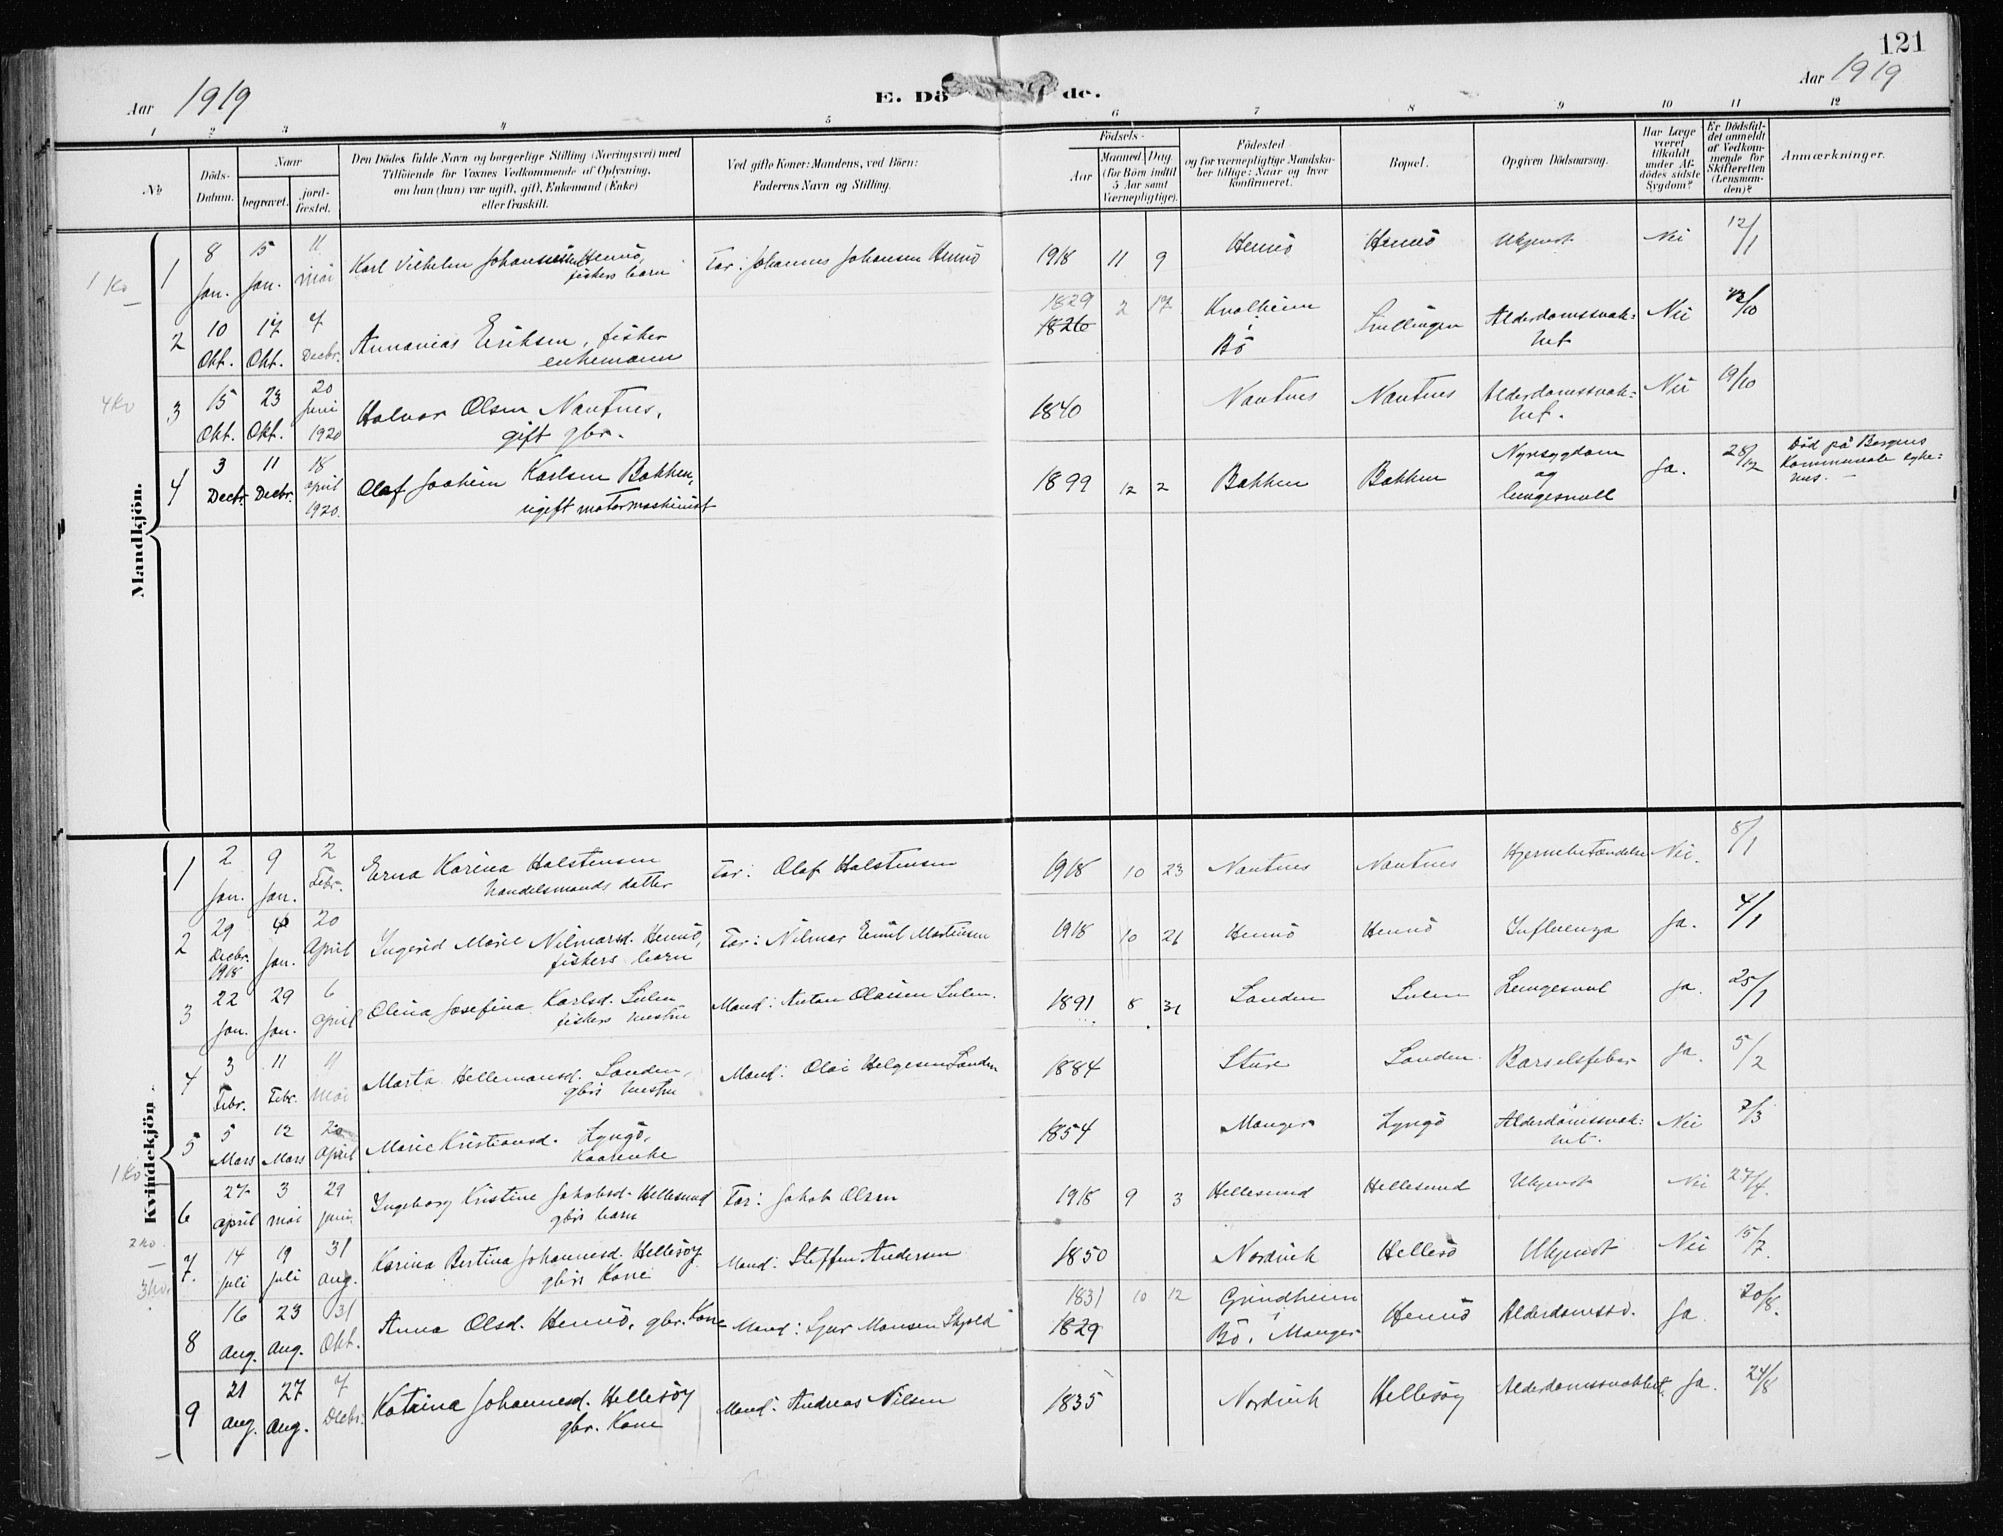 121
Aar 1919
E. Dö de.
Aar 1919
1 2 3 4 5 6 7 8 9 10 11 12
No
Döds-Datum.
Naar
begravet.
jord-fæstet.
Den Dödes fulde Navn og borgerlige Stilling (Næringsvei) med
Tilföiende for Voxnes Vedkommende af Oplysning,
om han (hun) var ugift, gift, Enkemand (Enke)
eller fraskilt.
Ved gifte Koner: Mandens, ved Börn:
Faderens Navn og Stilling.
Födsels-
Aar
Maaned Dag
(for Börn indtil
5 Aar samt
Værnepligtige).
Födested
og for værnepligtige Mandska-
ber tillige: Naar og hvor
konfirmeret.
Bopæl.
Opgiven Dödsaarsag.
Har Læge
været
tilkaldt
under Af-
dödes sidste
Sygdom?
Er Dödsfal-
det anmeldt
af Vedkom-
mende for
Skifteretten
(Lensman-
den)?
Anmærkninger.
Mandkjön.
1 Ko
1 8 Jan. 15 Jan. 11 Mai Karl Vilhelm Johannessen Hennö, fiskers barn Far: Johannes Johansen Hennö 1918 11 9 Hennö Hennö Ukjendt Nei 12/1
2 10 Okt. 17 Okt. 7 Decbr. Annanias Eriksen, fisker enkemann 1829 1826 2 17 Kvalheim i Bö Alderdomssvak: het Nei /10
4 Ko
3 15 Okt. 23 Okt. 20 Juni 1920 Halvor Olsen Nautnes, gift gbr. 1840 Nautnes Nautnes Alderdomssvak: het. Nei 19/10
4 3 Decbr. 11 Decbr. 18 april 1920. Olaf Joakim Karlsen Bakken, ugift motormaskinist 1899 12 2 Bakken Bakken Nyresygdom og lungesvull Ja. 28/12 Död på Bergens Kommunale syke: hus.
Kvindekjön
1 2 Jan. 9 Jan. 2 Febr. Erna Karina Halstensen handelsmands datter Far: Olaf Halstensen 1918 10 23 Nautnes Nautnes Hjernebetændelse Nei. 8/1
2 29 Decbr. 1918 4 Jan. 20 April Ingerid Marie Nilmarsd. Hennö, fiskers barn Far: Nilmar Emil Martinsen 1918 10 26 Hennö Hennö Influenza Ja. 4/1
3 22 Jan. 29 Jan. 6 april Olina Josefina Karlsd. Sulen fiskers hustru Mand: Anton Olaisen Sulen. 1891 8 31 Sanden Sulen Lungesvul Ja. 25/1
4 3 Febr. 11 Febr. 11 Mai Marta Hellemansd. Sanden, gbrs hustru Mand: Olai Helgesen Sanden 1884 Sture Sanden Barselsfeber Ja. 5/2
5 5 Mars 12 Mars 20 April Marie Kristiansd. Lyngö, Kaarenke 1854 Manger Lyngö Alderdomssvak: het. Nei 7/3
1 Ko
6 27 april 3 mai 29 juni Ingeborg Kristine Jakobsd. Hellesund gbrs barn Far: Jakob Olsen 1918 9 3 Hellesund Hellesund Ukjendt Nei 27/4.
2 Ko.
7. 14 juli 19 juli 31 aug. Karina Bertina Johannesd. Hellesöy gbrs Kone Mand: Steffen Andersen 1850 Nordvik Hellesö Ukjendt Nei 15/7.
3 Ko.
8 16 aug. 23 aug. 31 Okt. Anna Olsd. Hennö, gbr. Kone Mand: Sjur Monsen Skjold 1831 1829 10 12 Grindheim i Bö, Manger Hennö Alderdomssv. Ja 20/8.
9 21 aug. 27 aug. 7 Decbr. Katrina Johannesd. Hellesöy gbr. Kone Mand: Andreas Nilsen 1835 Nordvik Hellesöy Alderdomssvakhet. Ja. 24/8